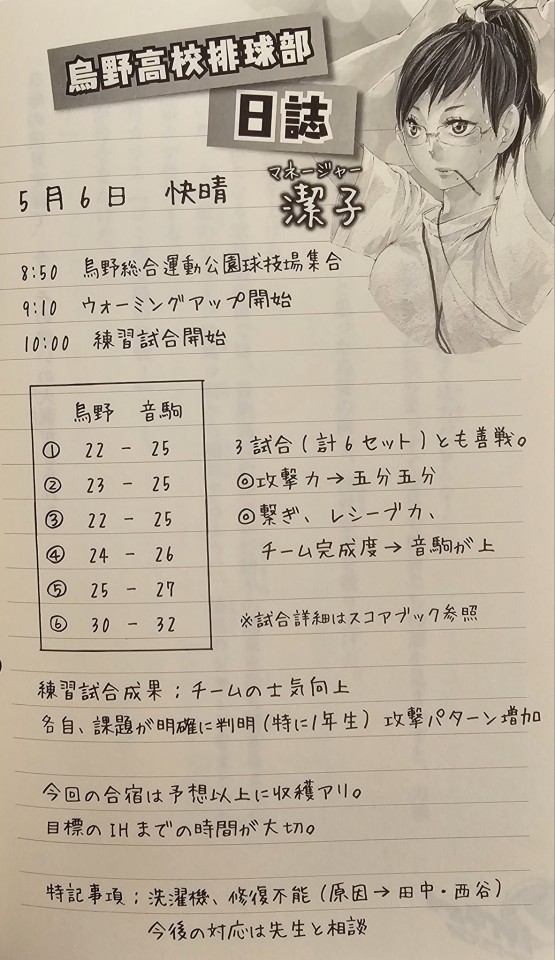 烏野高校排球部
日誌
マネージャー
潔子
5月6日 快晴
8:50 烏野総合運動公園球技場集合
9:10 ウォーミングアップ開始
10:00 練習試合開始
烏野 音駒
① 22 - 25
② 23 - 25
③ 22 - 25
④ 24 - 26
⑤ 25 - 27
⑥ 30 - 32
3試合(計6セット)とも善戦。
◎攻撃力→五分五分
◎繋ぎ、レシーブ力、
チーム完成度→音駒が上
※試合詳細はスコアブック参照
練習試合成果;チームの士気向上
各自、課題が明確に判明(特に1年生) 攻撃パターン増加
今回の合宿は予想以上に収穫アリ。
目標のIHまでの時間が大切。
特記事項;洗濯機、修復不能(原因→田中・西谷)
今後の対応は先生と相談